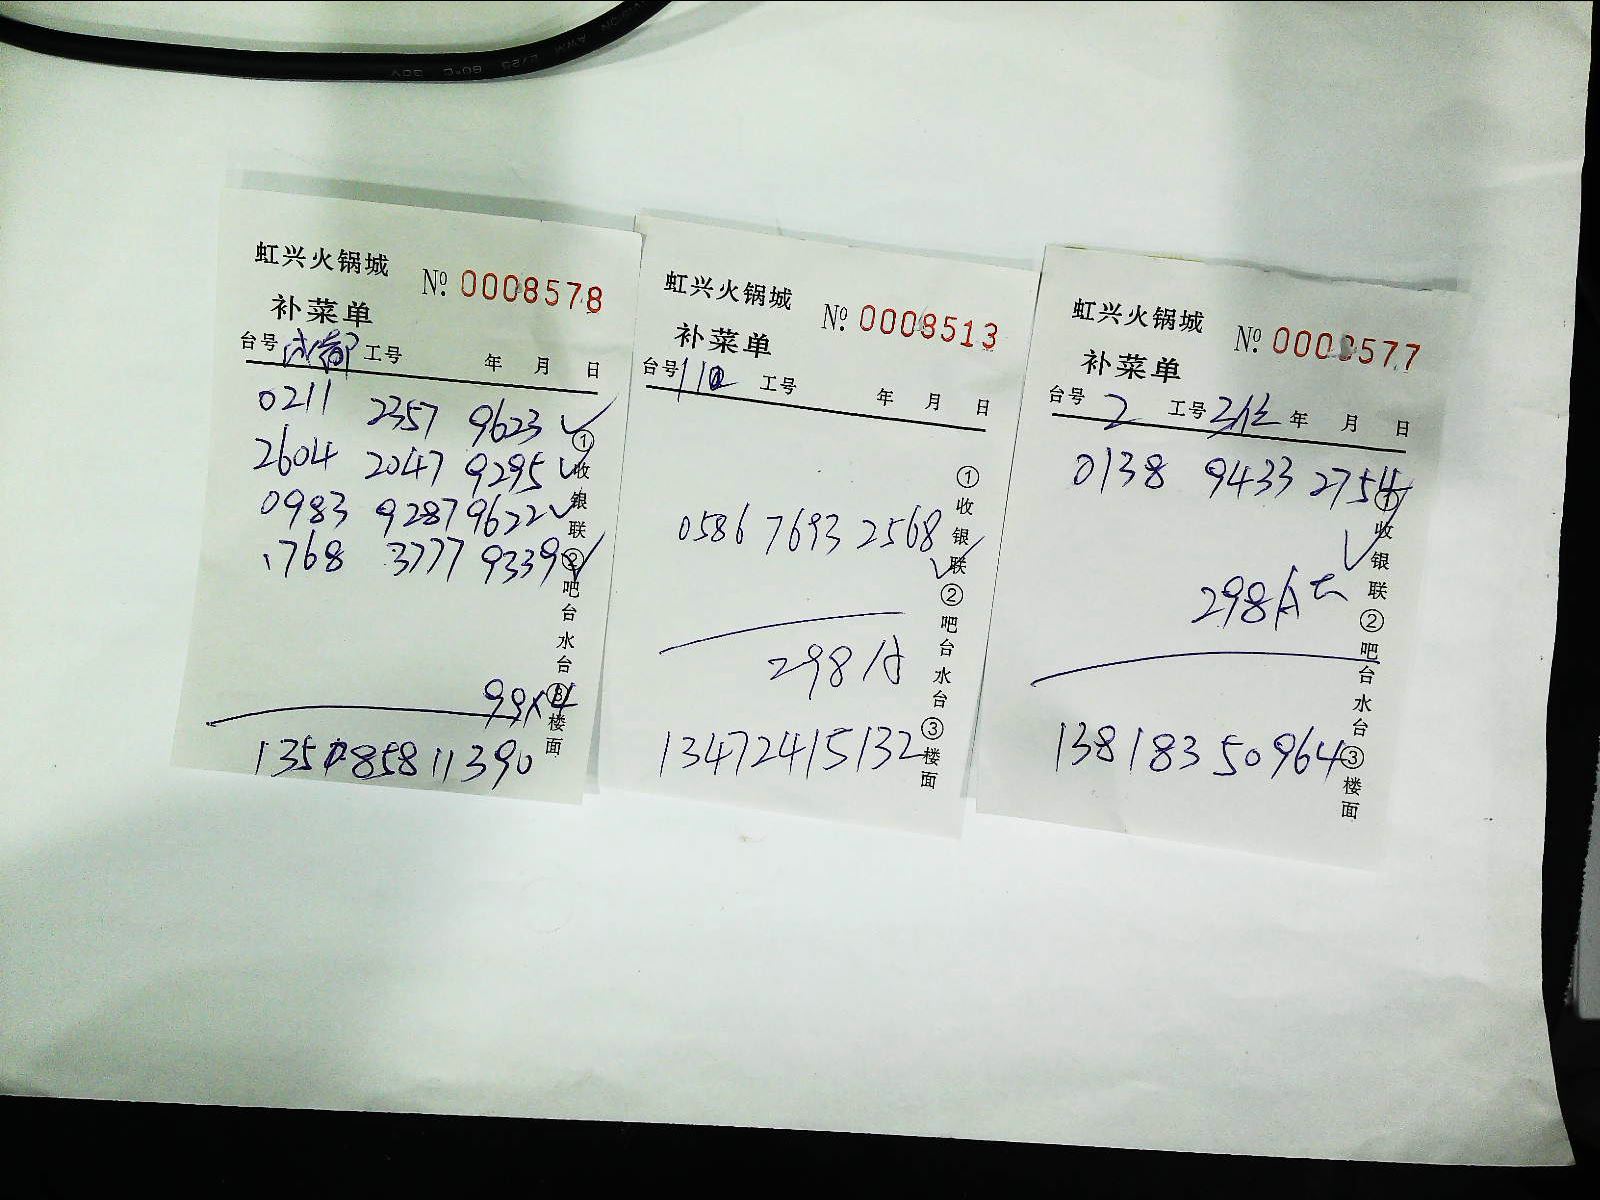 虹兴火锅城 № 0008578
补菜单
台号 成都 工号 年 月 日
0211 2357 9623 ✓
2604 2047 9295 ✓
0983 9287 9622 ✓
1768 3777 9339 ✓
99×4
13508581 1390
①收银联②吧台水台③楼面
虹兴火锅城 № 0008513
补菜单
台号 110 工号 年 月 日
0586 7693 2568 ✓
298/A
13472415132
①收银联②吧台水台③楼面
虹兴火锅城 № 0008577
补菜单
台号 2 工号 年 月 日
0138 9433 2754 ✓
298/A
13818350964
①收银联②吧台水台③楼面